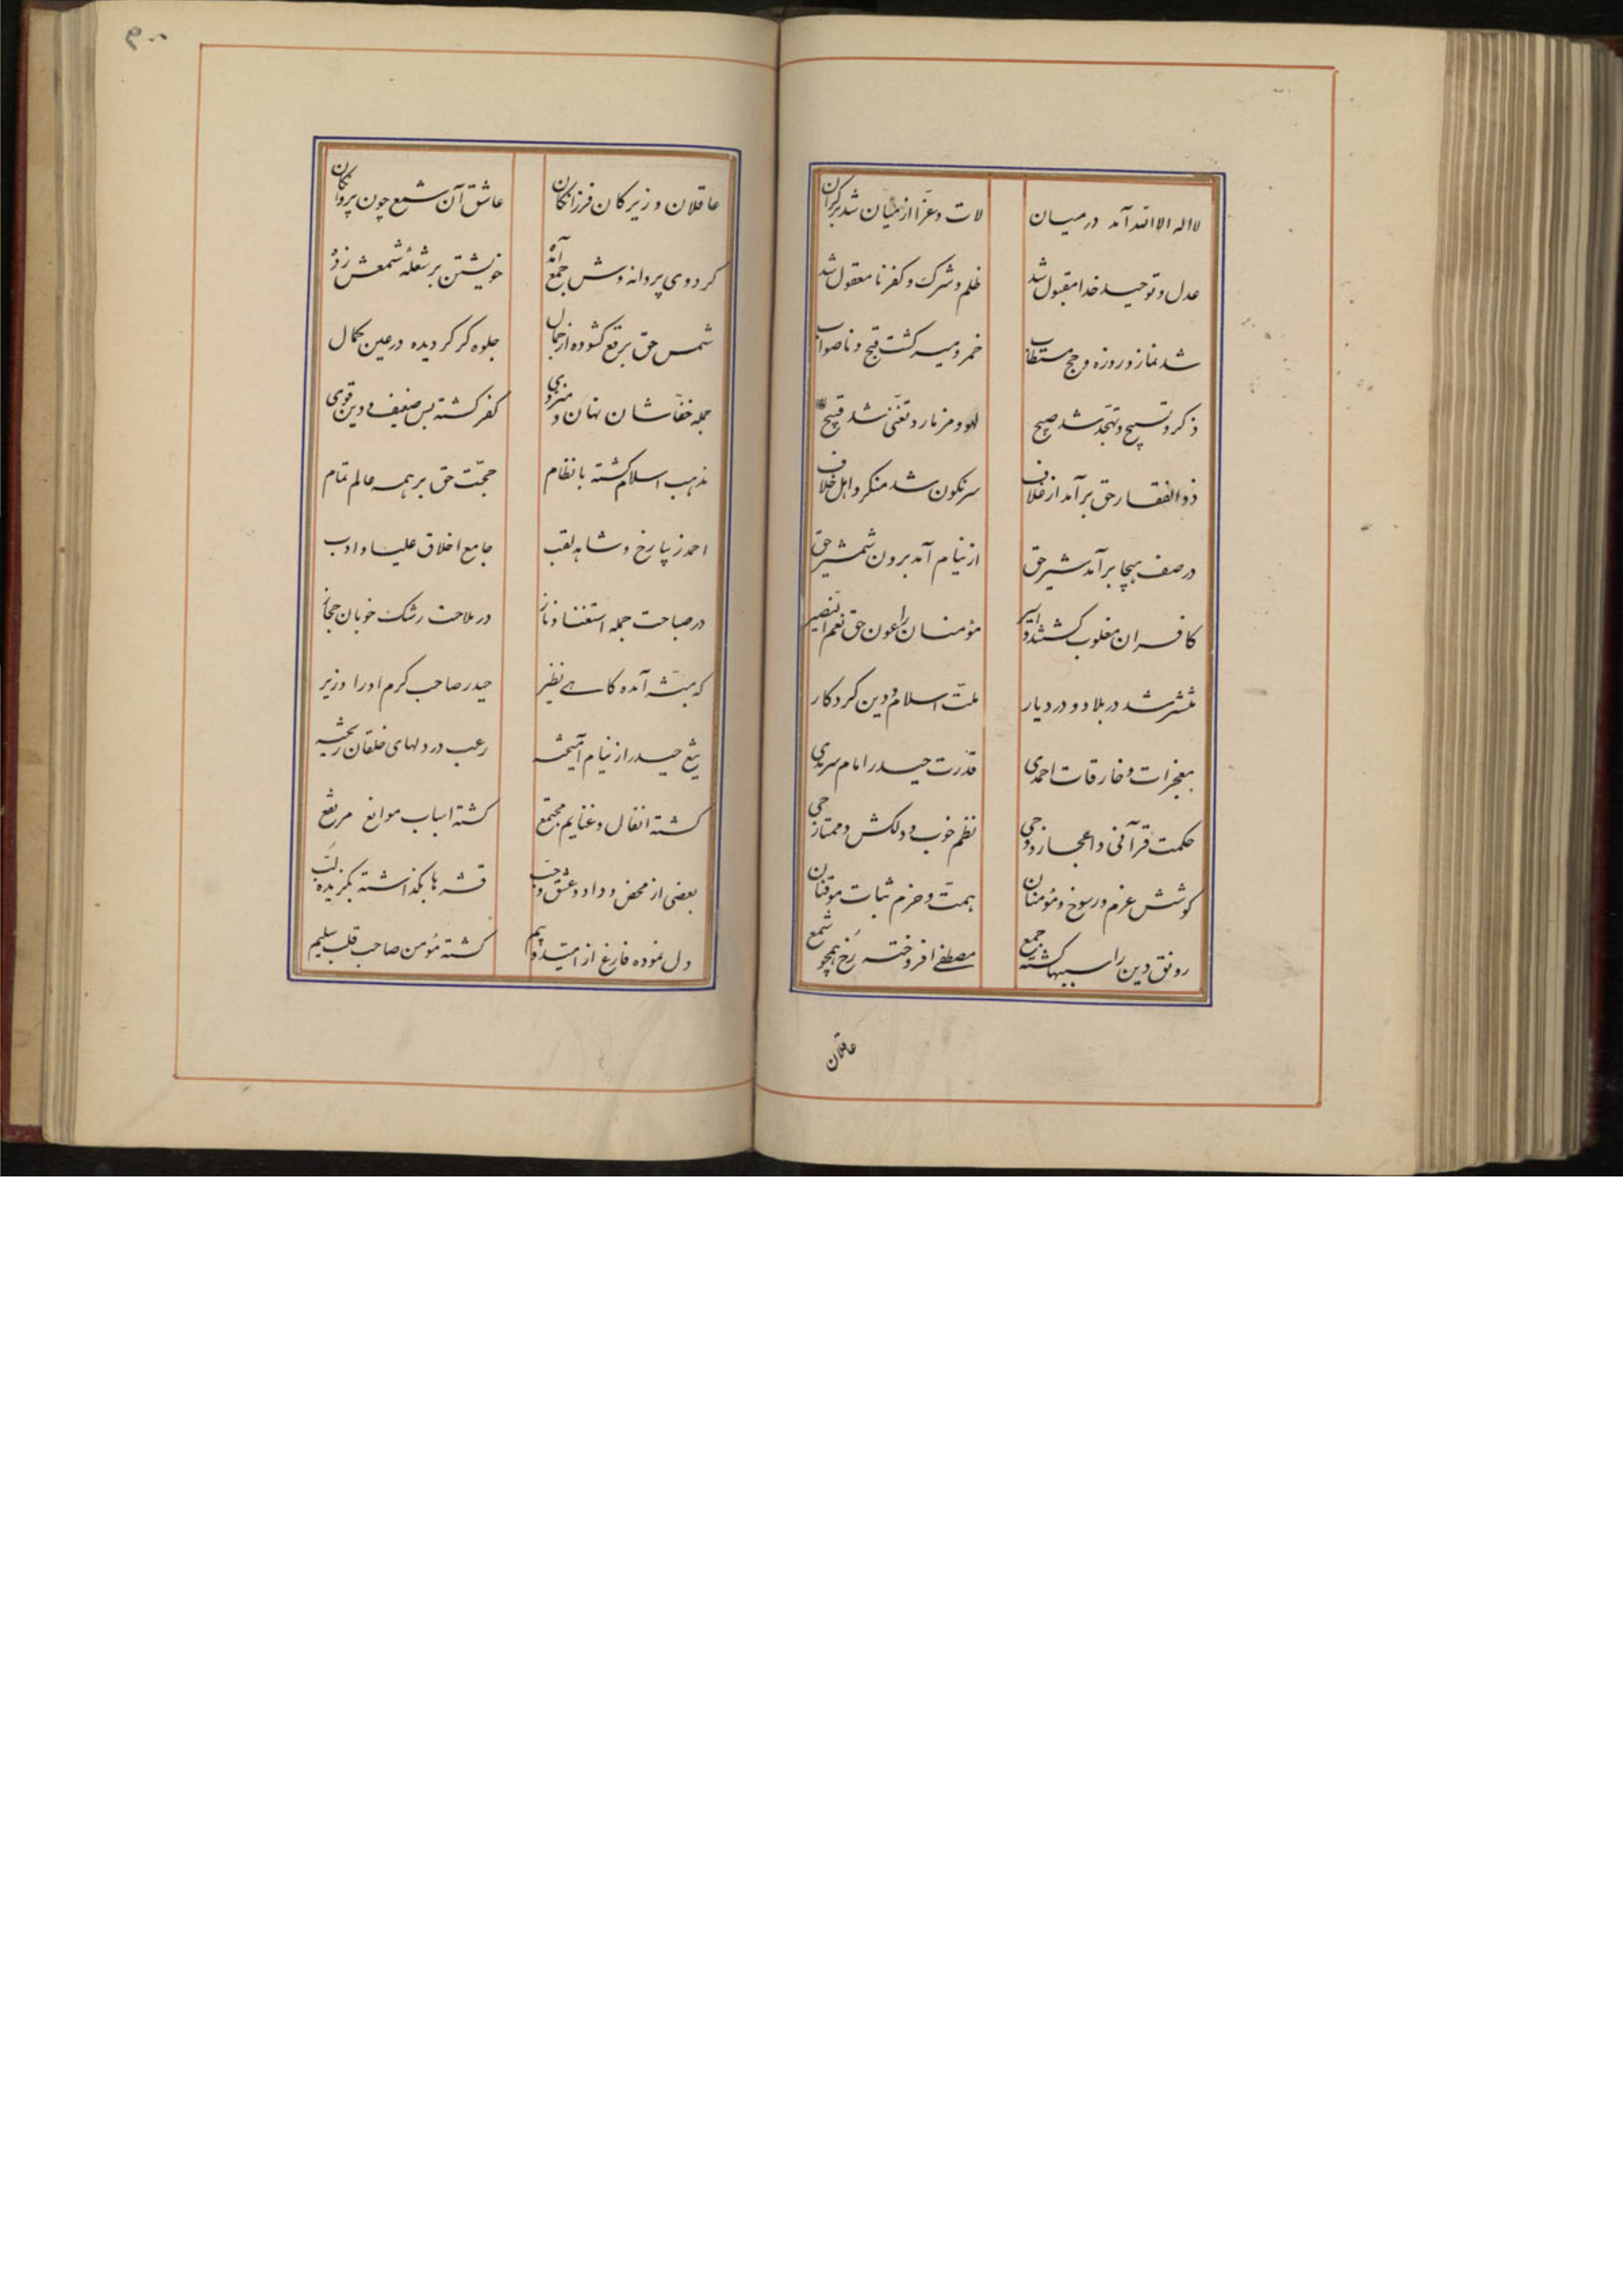 لااله الاالله آمد در میان لات و عزا از میان شد بر کران
عدل و توحید خدا مقبول شد ظلم و شرک و کفر نامعقول شد
شد نماز و روزه و حج مستطاب خمر و میسر کشت قبح و ناصواب
ذکر و تسبیح و تهجّد شد صبیح لهو و مزمار و تغنّی شد قبیح
ذوالفقار حق برآمد از غلاف سرنکون شد منکر و اهل خلاف
در صف هیجا برآمد شیر حق از نیام آمد برون شمشیر حق
کافران مغلوب کشتند و اسیر مؤمنان را عون حق نعم النصیر
منتشر شد در بلاد و در دیار ملّت اسلام و دین کردکار
معجزات و خارقات احمدی قدرت حیدر امام سرمدی
حکمت قرآنی و اعجاز وحی نظم خوب و دلکش و ممتاز
کوشش عزم و رسوخ مؤمنان همّت و حزم ثبات موقنان
رونق دین را سببها کشته جمع مصطفی افروخته رخ همچو شمع
عاقلان
۴۰۰
عاقلان و زیرکان فرزانکان عاشق آن شمع چون پروانکان
کرد وی پروانه وش جمع آمده خویشتن بر شعلهٔ شمعش زده
شمس حق برقع کشوده از جمال جلوه کر کردیده در عین کمال
جمله خفّاشان نهان و منزوی کفر کشته بس ضعیف و دین قوی
مذهب اسلام کشته بانظام حجّت حق بر همه عالم تمام
احمد زیبا رخ و شاهد لقب جامع اخلاق علیا و ادب
در صباحت جمله استغنا و ناز در ملاحت رشک خوبان حجاز
که آمده کاهی نظیر حیدر صاحب کرم او را وزیر
تیغ حیدر از نیام آمیخته رعب در دلهای خلقان ریخته
کشته انفال و غنایم مجتمع کشته اسباب موانع مرتفع
بعضی از محض و داد و عشق و حب قشرها بکذاشته بکزیده لب
دل نموده فارغ از امّید و بیم کشته مؤمن صاحب قلب سلیم